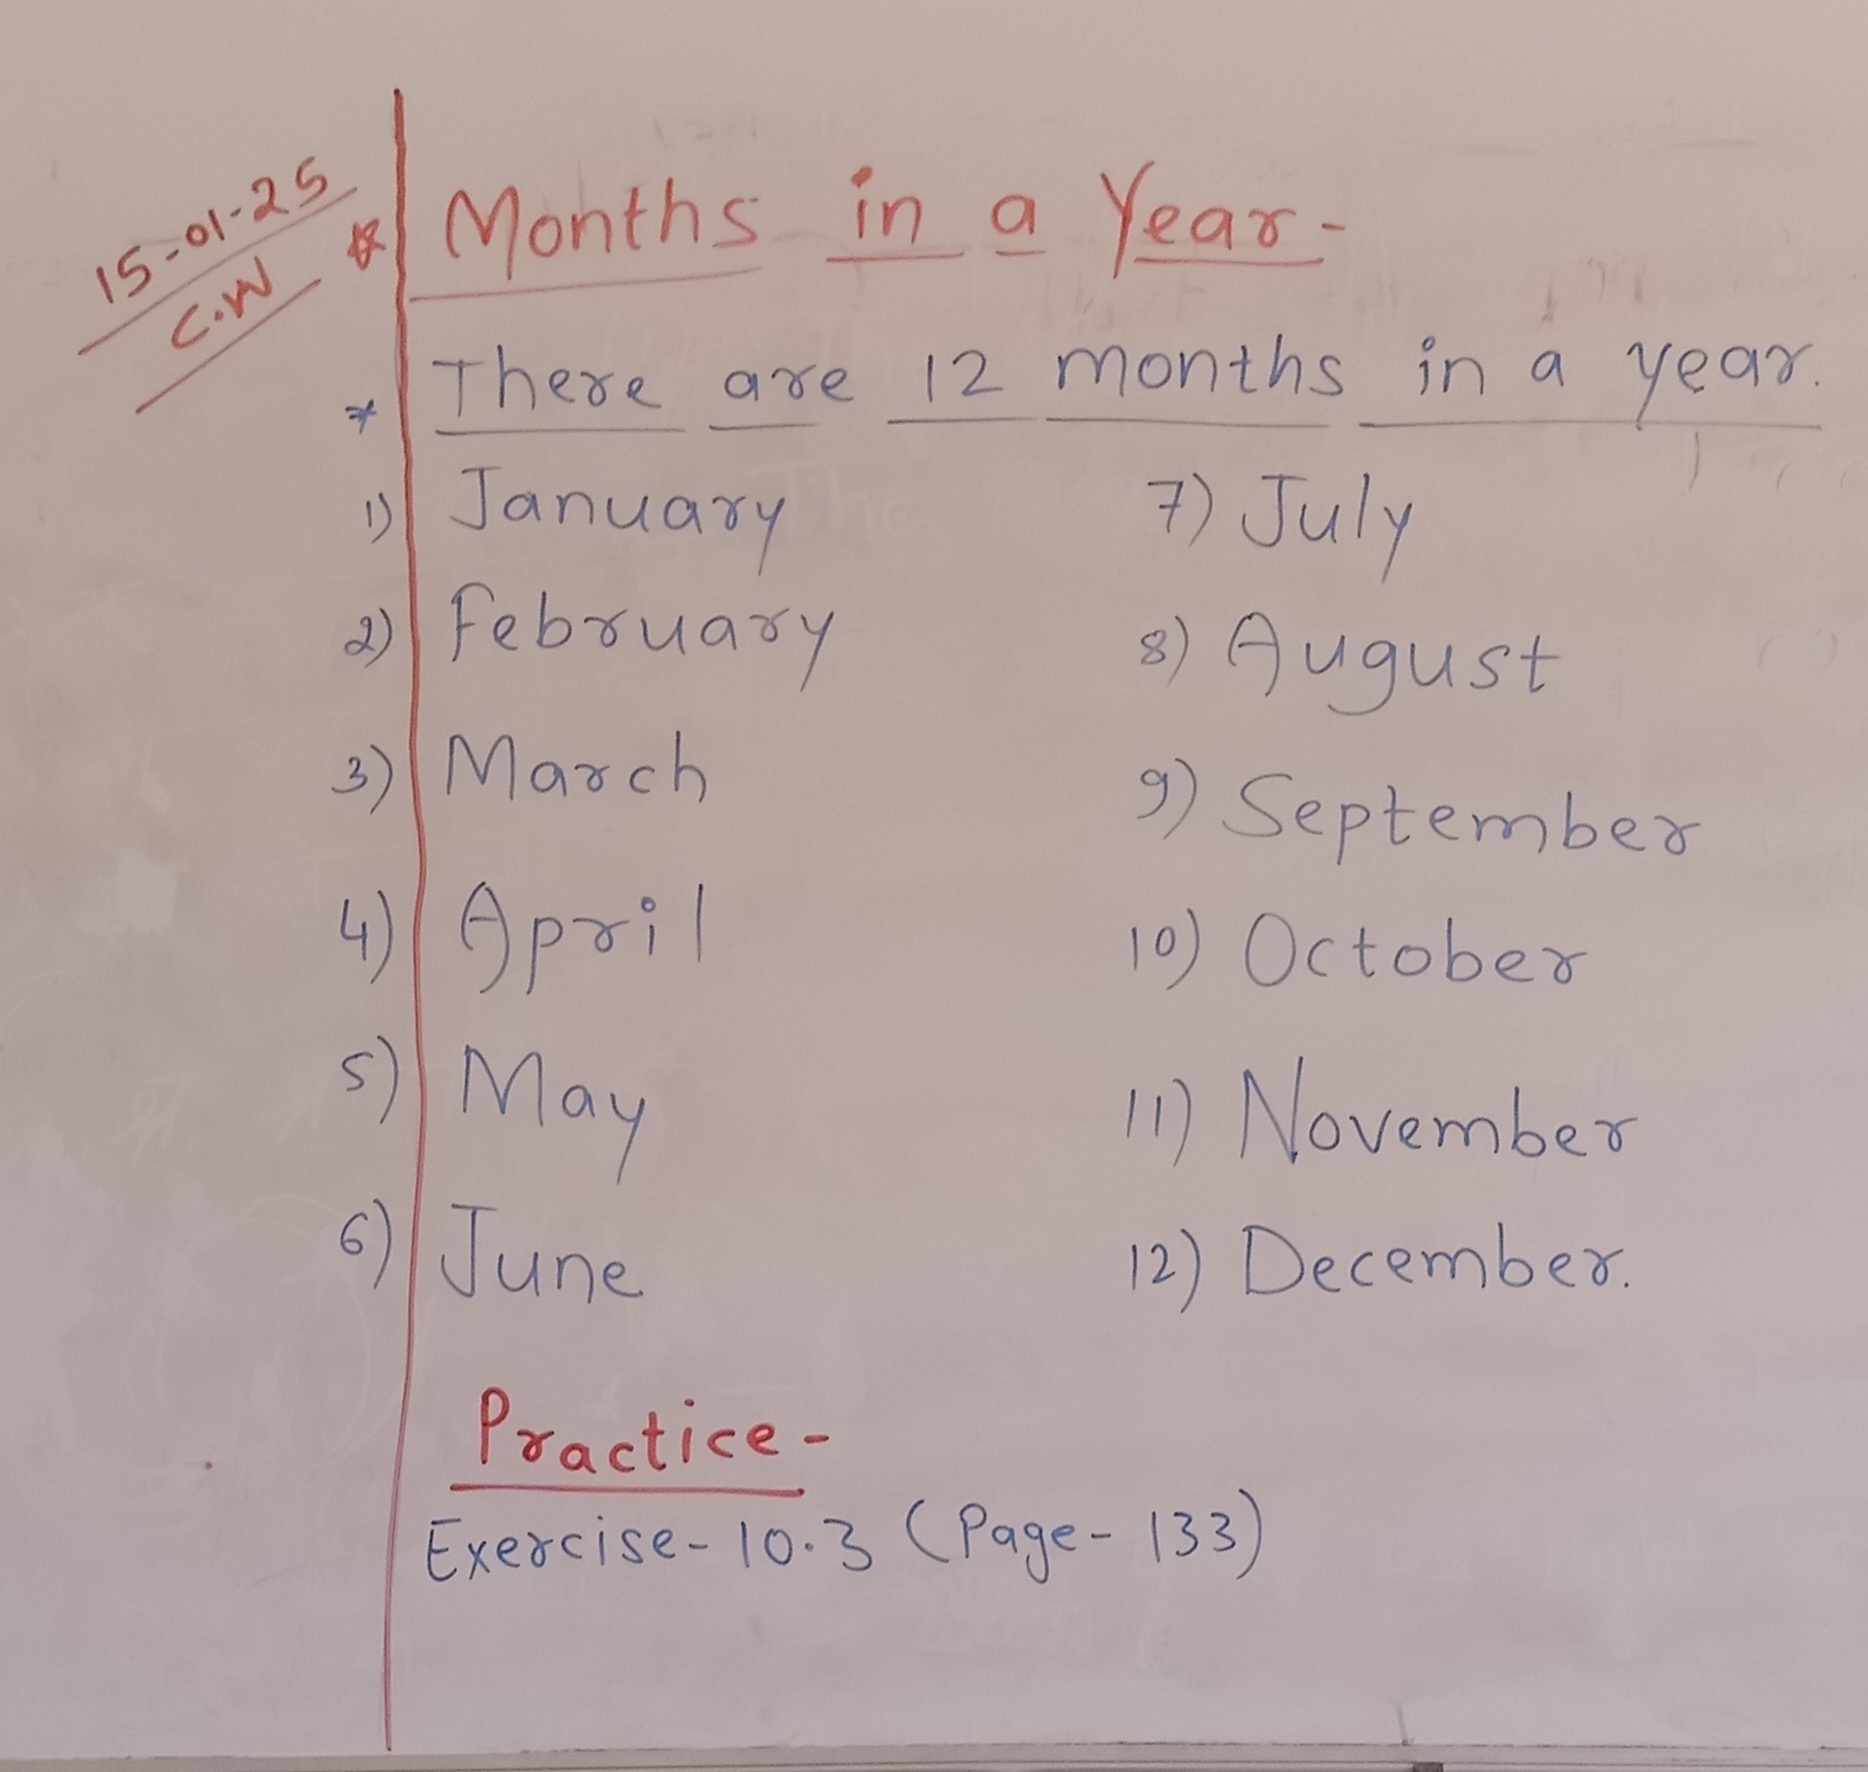 15-01-25
C.W
* Months in a Year-
* There are 12 months in a year.
1) January
2) February
3) March
4) April
5) May
6) June
7) July
8) August
9) September
10) October
11) November
12) December.
Practice-
Exercise-10.3 (Page-133)